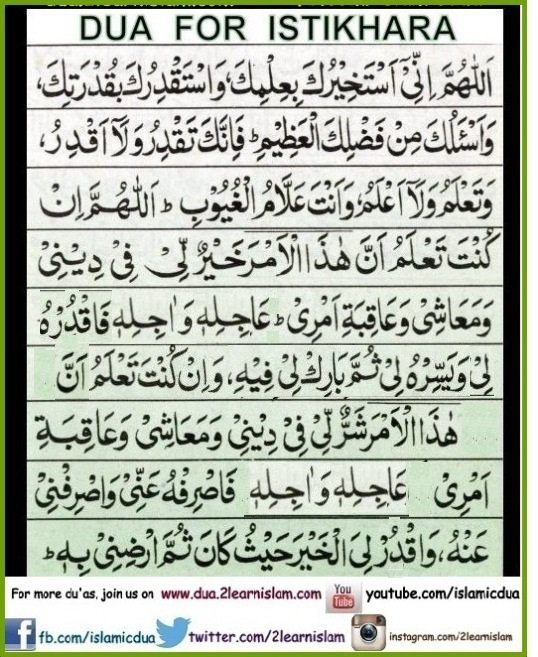 DUA FOR ISTIKHARA
اَللّٰهُمَّ اِنِّیْٓ اَسْتَخِیْرُكَ بِعِلْمِكَ، وَاسْتَقْدِرُكَ بِقُدْرَتِكَ،
وَاَسْئَلُكَ مِنْ فَضْلِكَ الْعَظِیْمِ ؕ فَاِنَّكَ تَقْدِرُ وَلَآ اَقْدِرُ،
وَتَعْلَمُ وَلَآ اَعْلَمُ، وَاَنْتَ عَلَّامُ الْغُیُوْبِ ؕ اَللّٰهُمَّ اِنْ
كُنْتَ تَعْلَمُ اَنَّ هٰذَا الْاَمْرَ خَیْرٌ لِّیْ فِیْ دِیْنِیْ
وَمَعَاشِیْ وَعَاقِبَةِ اَمْرِیْ ؕ عَاجِلِهٖ وَاٰجِلِهٖ فَاقْدُرْهُ
لِیْ وَیَسِّرْهُ لِیْ ثُمَّ بَارِكْ لِیْ فِیْهِ، وَاِنْ كُنْتَ تَعْلَمُ اَنَّ
هٰذَا الْاَمْرَ شَرٌّ لِّیْ فِیْ دِیْنِیْ وَمَعَاشِیْ وَعَاقِبَةِ
اَمْرِیْ عَاجِلِهٖ وَاٰجِلِهٖ فَاصْرِفْهُ عَنِّیْ وَاصْرِفْنِیْ
عَنْهُ، وَاقْدُرْ لِیَ الْخَیْرَ حَیْثُ كَانَ ثُمَّ ارْضِنِیْ بِهٖ ؕ
For more du'as, join us on www.dua.2learnislam.com You Tube youtube.com/islamicdua
f fb.com/islamicdua twitter.com/2learnislam instagram.com/2learnislam